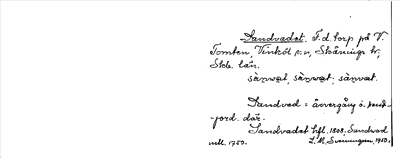 Sandvadet. F.d. torp på V.
Tomten, Vinköl s:n, Skånings hd,
Skb. län.
sànwat, sànwat; sànvat.
Sandvad = åövergång ö. sand-
jord. där.
Sandvadet hfl. 1808, Sandvad
mtl. 1750.
L. M. Svenungsson, 1950.